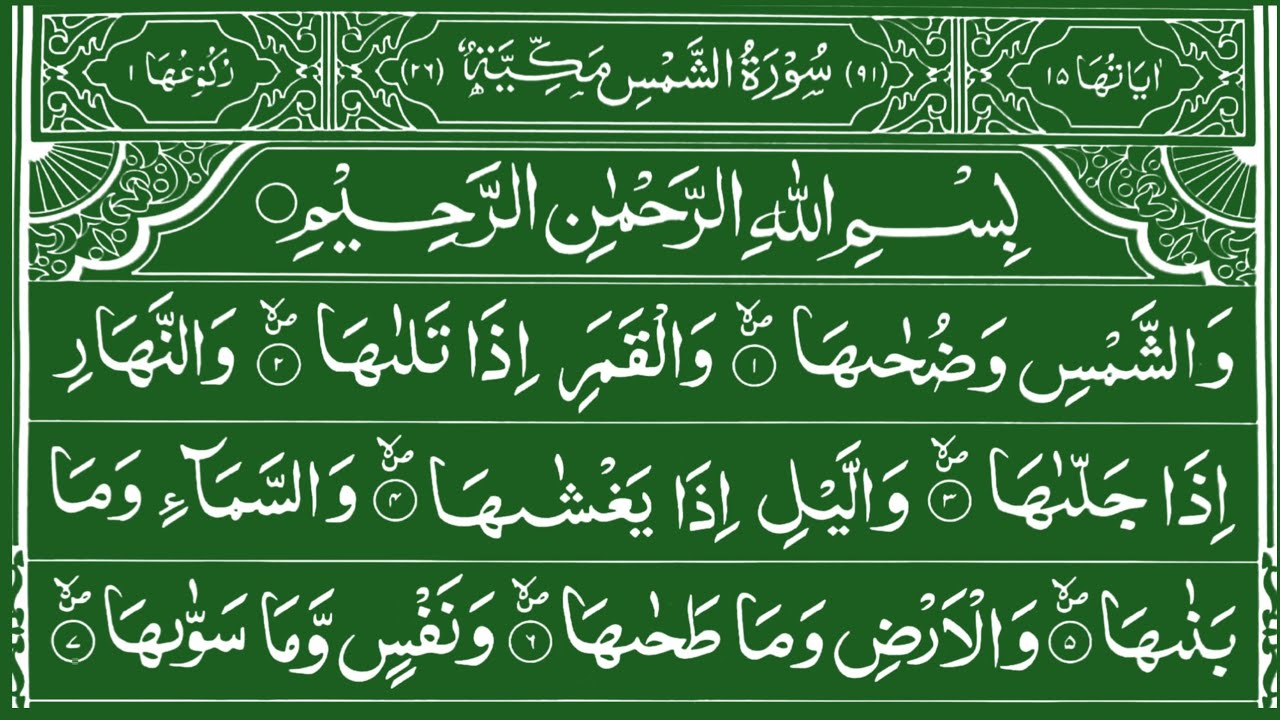 اٰيَاتُهَا ١٥ (٩١) سُوْرَةُ الشَّمْسِ مَكِّيَّةٌ (٢٦) رُكُوْعُهَا ١
بِسْمِ اللّٰهِ الرَّحْمٰنِ الرَّحِيْمِ
وَالشَّمْسِ وَضُحٰىهَا ۪ۙ ١ وَالْقَمَرِ اِذَا تَلٰىهَا ۪ۙ ٢ وَالنَّهَارِ
اِذَا جَلّٰىهَا ۪ۙ ٣ وَالَّيْلِ اِذَا يَغْشٰىهَا ۪ۙ ۴ وَالسَّمَآءِ وَمَا
بَنٰىهَا ۪ۙ ۵ وَالْاَرْضِ وَمَا طَحٰىهَا ۪ۙ ٦ وَنَفْسٍ وَّمَا سَوّٰىهَا ۪ۙ ٧